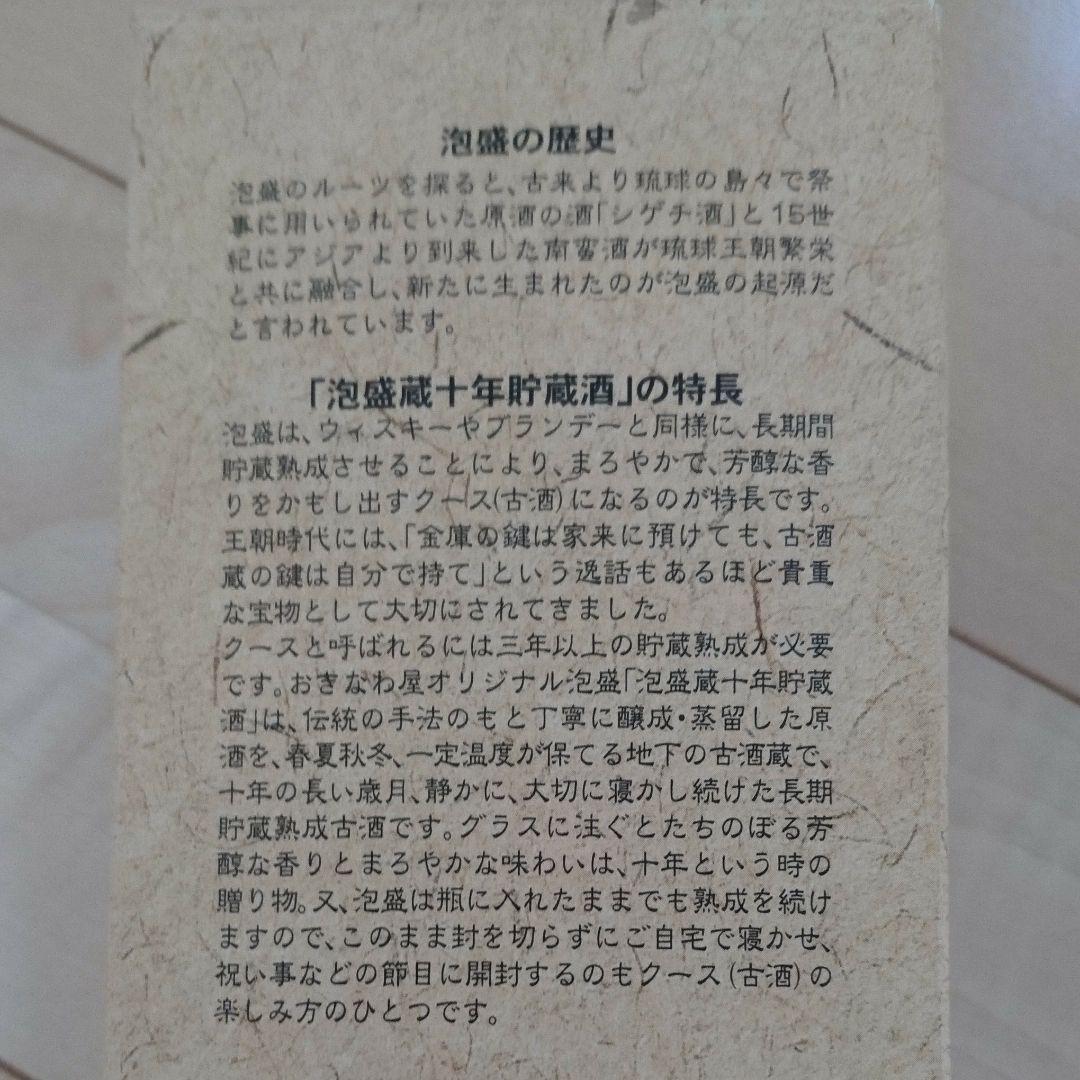 泡盛の歴史
泡盛のルーツを探ると、古来より琉球の島々で祭
事に用いられていた原酒の酒「シゲチ酒」と15世
紀にアジアより到来した南蛮酒が琉球王朝繁栄
と共に融合し、新たに生まれたのが泡盛の起源だ
と言われています。
「泡盛蔵十年貯蔵酒」の特長
泡盛は、ウィスキーやブランデーと同様に、長期間
貯蔵熟成させることにより、まろやかで、芳醇な香
りをかもし出すクース(古酒)になるのが特長です。
王朝時代には、「金庫の鍵は家来に預けても、古酒
蔵の鍵は自分で持て」という逸話もあるほど貴重
な宝物として大切にされてきました。
クースと呼ばれるには三年以上の貯蔵熟成が必要
です。おきなわ屋オリジナル泡盛「泡盛蔵十年貯蔵
酒」は、伝統の手法のもと丁寧に醸成・蒸留した原
酒を、春夏秋冬、一定温度が保てる地下の古酒蔵で、
十年の長い歳月、静かに、大切に寝かし続けた長期
貯蔵熟成古酒です。グラスに注ぐとたちのぼる芳
醇な香りとまろやかな味わいは、十年という時の
贈り物。又、泡盛は瓶に入れたままでも熟成を続け
ますので、このまま封を切らずにご自宅で寝かせ、
祝い事などの節目に開封するのもクース(古酒)の
楽しみ方のひとつです。